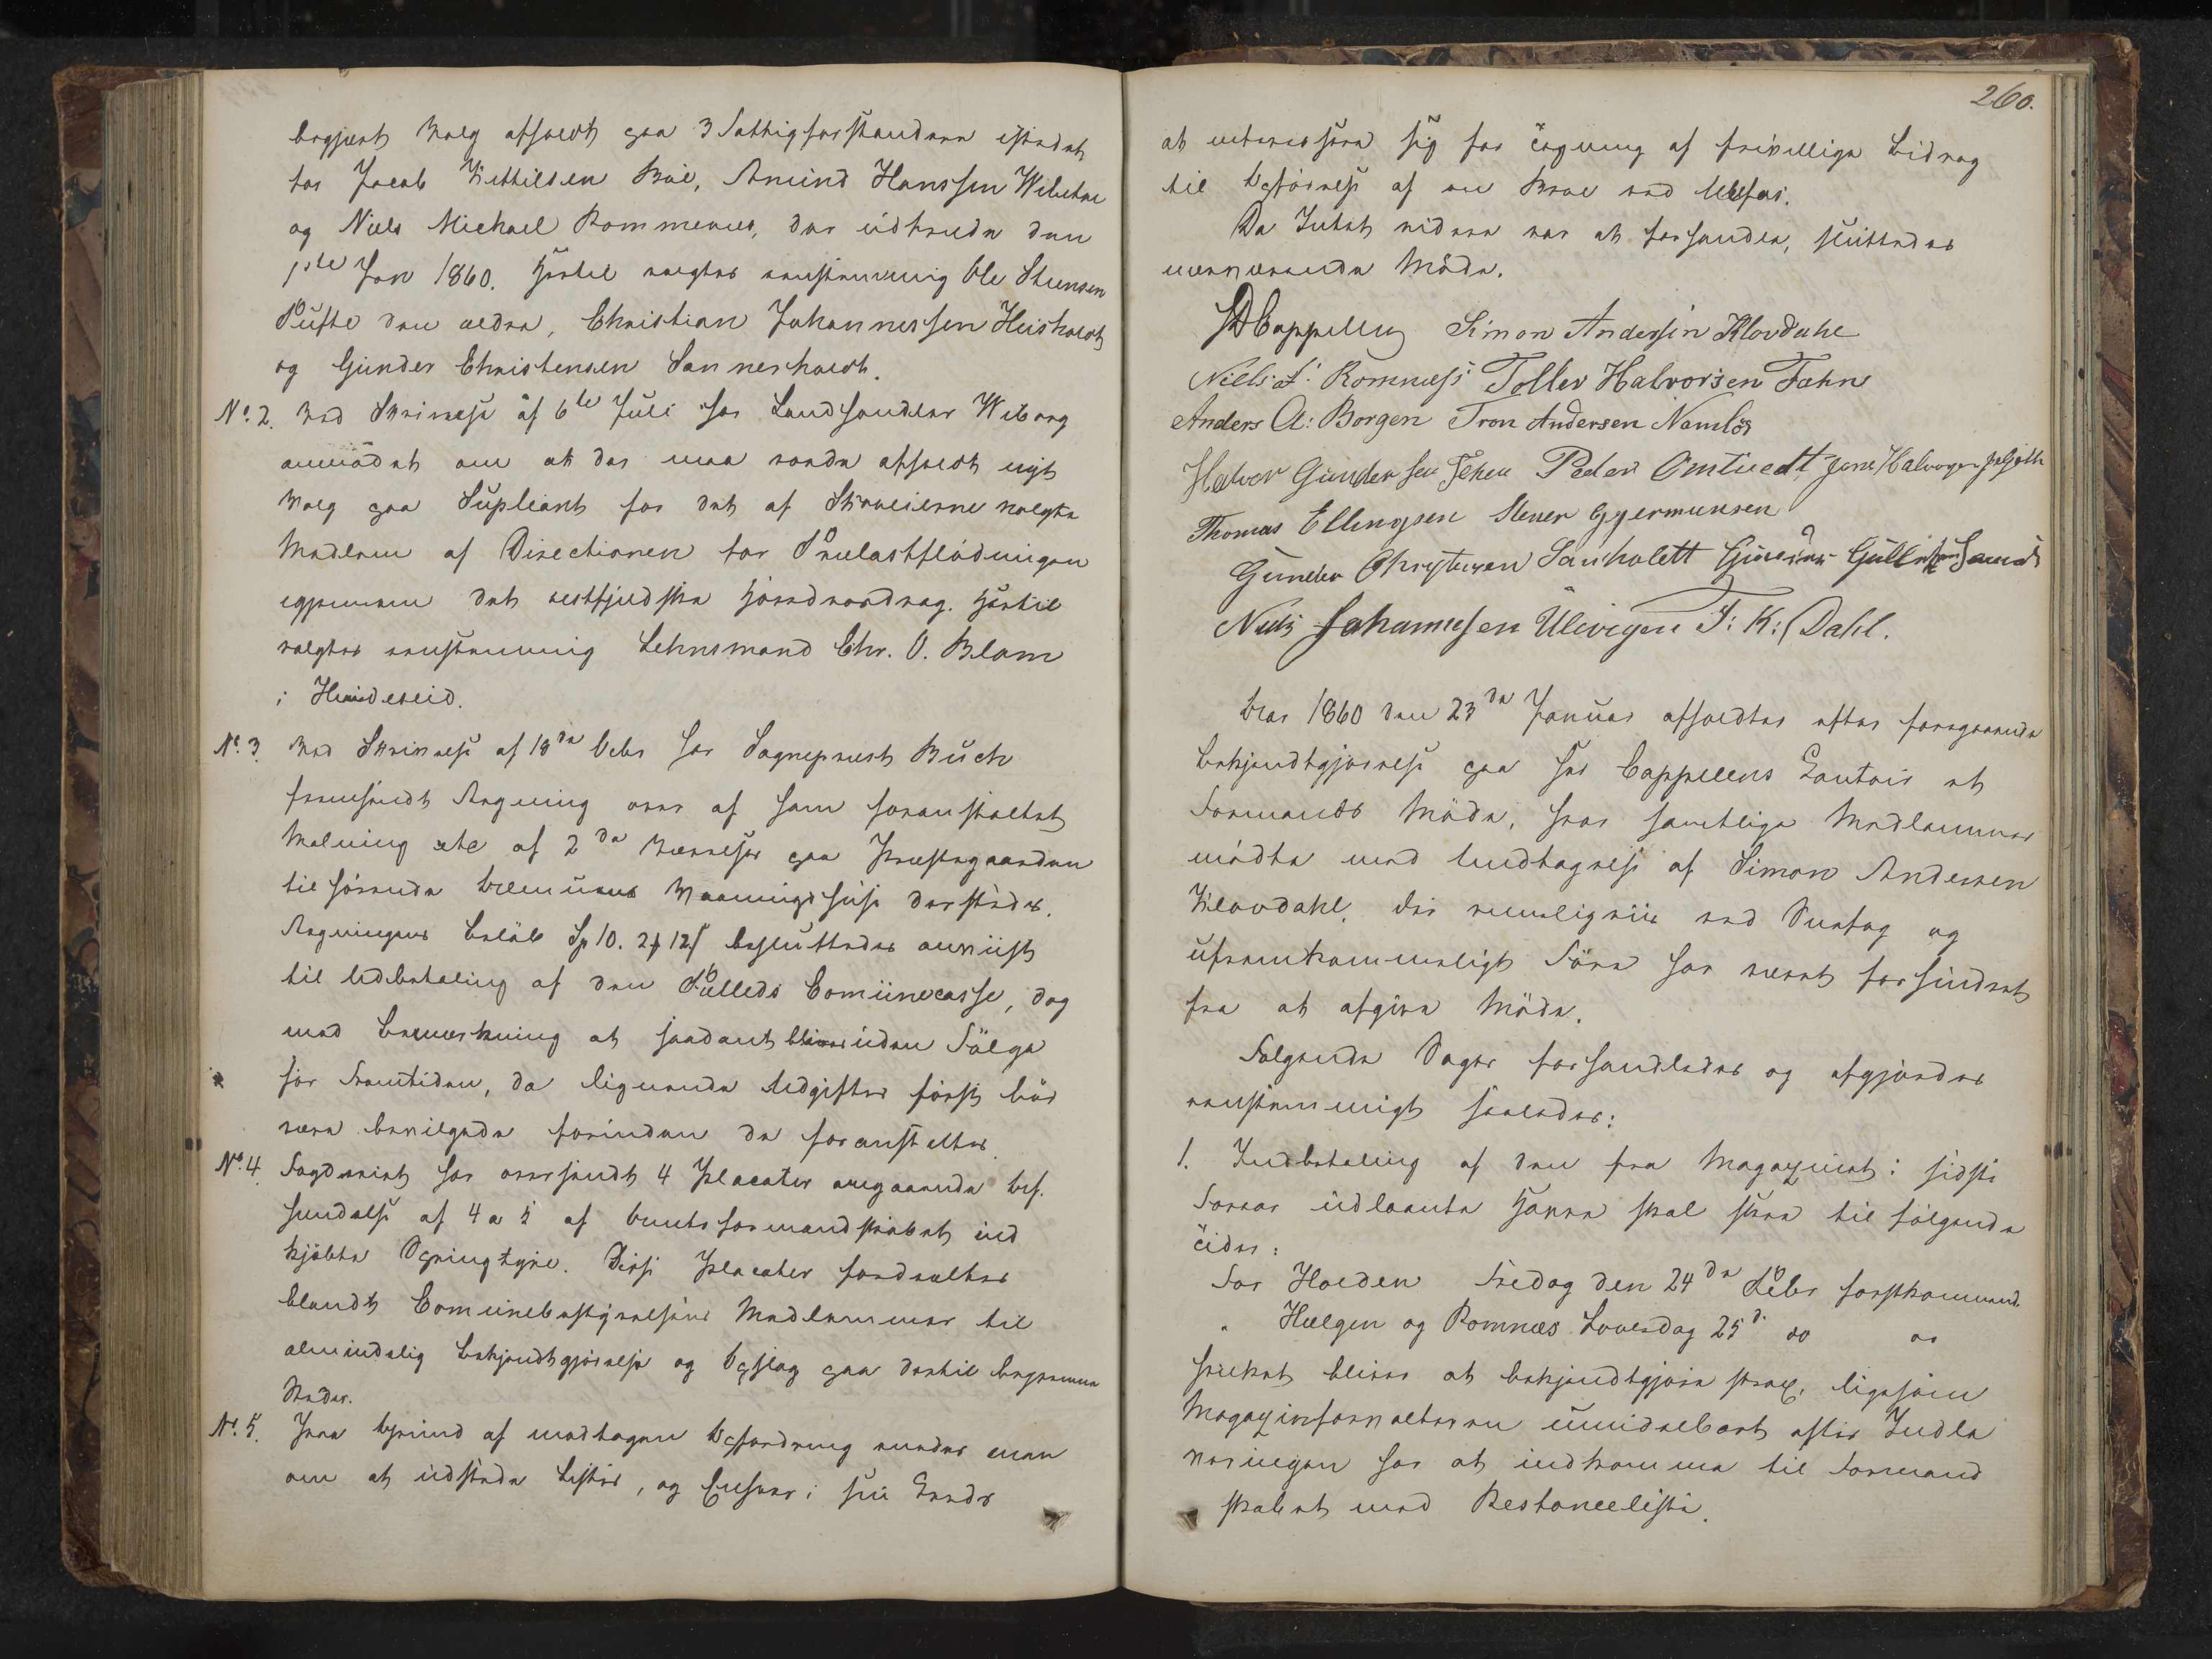 begjært Valg afholdt paa 3 Fattigforstandere istedet
for Jacob Kittilsen Bøe, Amund Hanssen
og Niels Michael Romnenæs, der udtræde den
1ste Jan 1860. Hertil valgtes eenstemmig Ole Steensen
Tufte den ældre, Christian Johannessen Heisholdt
og Gunder Christensen Sannesholdt.
No. 2. Ved Skrivelse af 6te Juli har Landhandler Wiborg
anmodet om at der maa vorde afholdt nyt
Valg paa Supleant for det af Skoveierne valgte
Medlem af Directionen for Fællesflödningen
igjennem det vestfjeldske Hovedvasdrag. Hertil
valgtes eenstemmig Lehnsmand Chr. O. Blom
i Hvideseid.
No. 3. Ved Skrivelse af 18de Octbr har Sogneprest Buch
fremsendt Regning over af ham foranstaltet
Malning etc af 2de Værelser paa Præstegaarden
tilhörende Vaaningshuse dersteds.
Regningens Belöb Sp 10. 2 12 besluttedes anviist
til Udbetaling af den Fælleds Comünecasse, dog
med Bemærkning at saadant bliver uden Fölge
for Fremtiden, da lignende Udgifter först bör
være bevilgede forinden de foranstaltes.
No. 4. Fogderiet har oversendt 4 Placater angaaende
handelse af 4 a 5 af Amtsformandskabet ind
kjöbte Springtyre. Disse Placater fordeeltes
blandt Comünebestyrelsens Medlemmer til
almindelig Bekjendtgjörelse og Opslag paa dertil beqvemme
Steder.
No. 5. Paa Grund af modtagen Opfordring enedes man
om at udstede Lister, og Enhver i sin Kreds
260.
at interessere sig for Tegning af frivillige Bidrag
til Opförelse af en Broe ved Ulefos.
Da Intet videre var at forhandle, sluttedes
nærværende Möde.
Cappelen Simon Andersen Klovdahl
Niels J. Romnæss Tollev Halvorsen Fæhn
Anders A: Borgen Tron Andersen Namløs
Halvor Gundersen Teheu Peder Omtvedt
Thomas Ellingsen Stener Gjermunsen
Gunder Chrystensen Sanholtt
Niels Johannesen Ülevigen T: K: Dahl.
Aar 1860 den 23de Januar afholdtes efter foregaaende
Bekjendtgjörelse paa Hr Cappelens Contoir et
Formands Möde, hvor samtlige Medlemmer
mödte med Undtagelse af Simon Andersen
Klovdahl, der rimeligviis ved Snefog og
ufremkommeligt Före har været forhindret
fra at afgive Möde.
Følgende Sager forhandledes og afgjordes
eenstemmigt saaledes:
1. Indbetaling af den fra Magazinet i sidste
Foraar udlaante Havre skal skee til fölgende
Tider:
For Holden Fredag den 24de Febr förstkommende
" Hælgen og Romnæs Loverdag 25d. do do
hvilket bliver at bekjendtgjöre strax, ligesom
Magazinforvalteren umiddelbart efter Indle
veringen har at indkomme til Formand
skabet med Restanceliste.